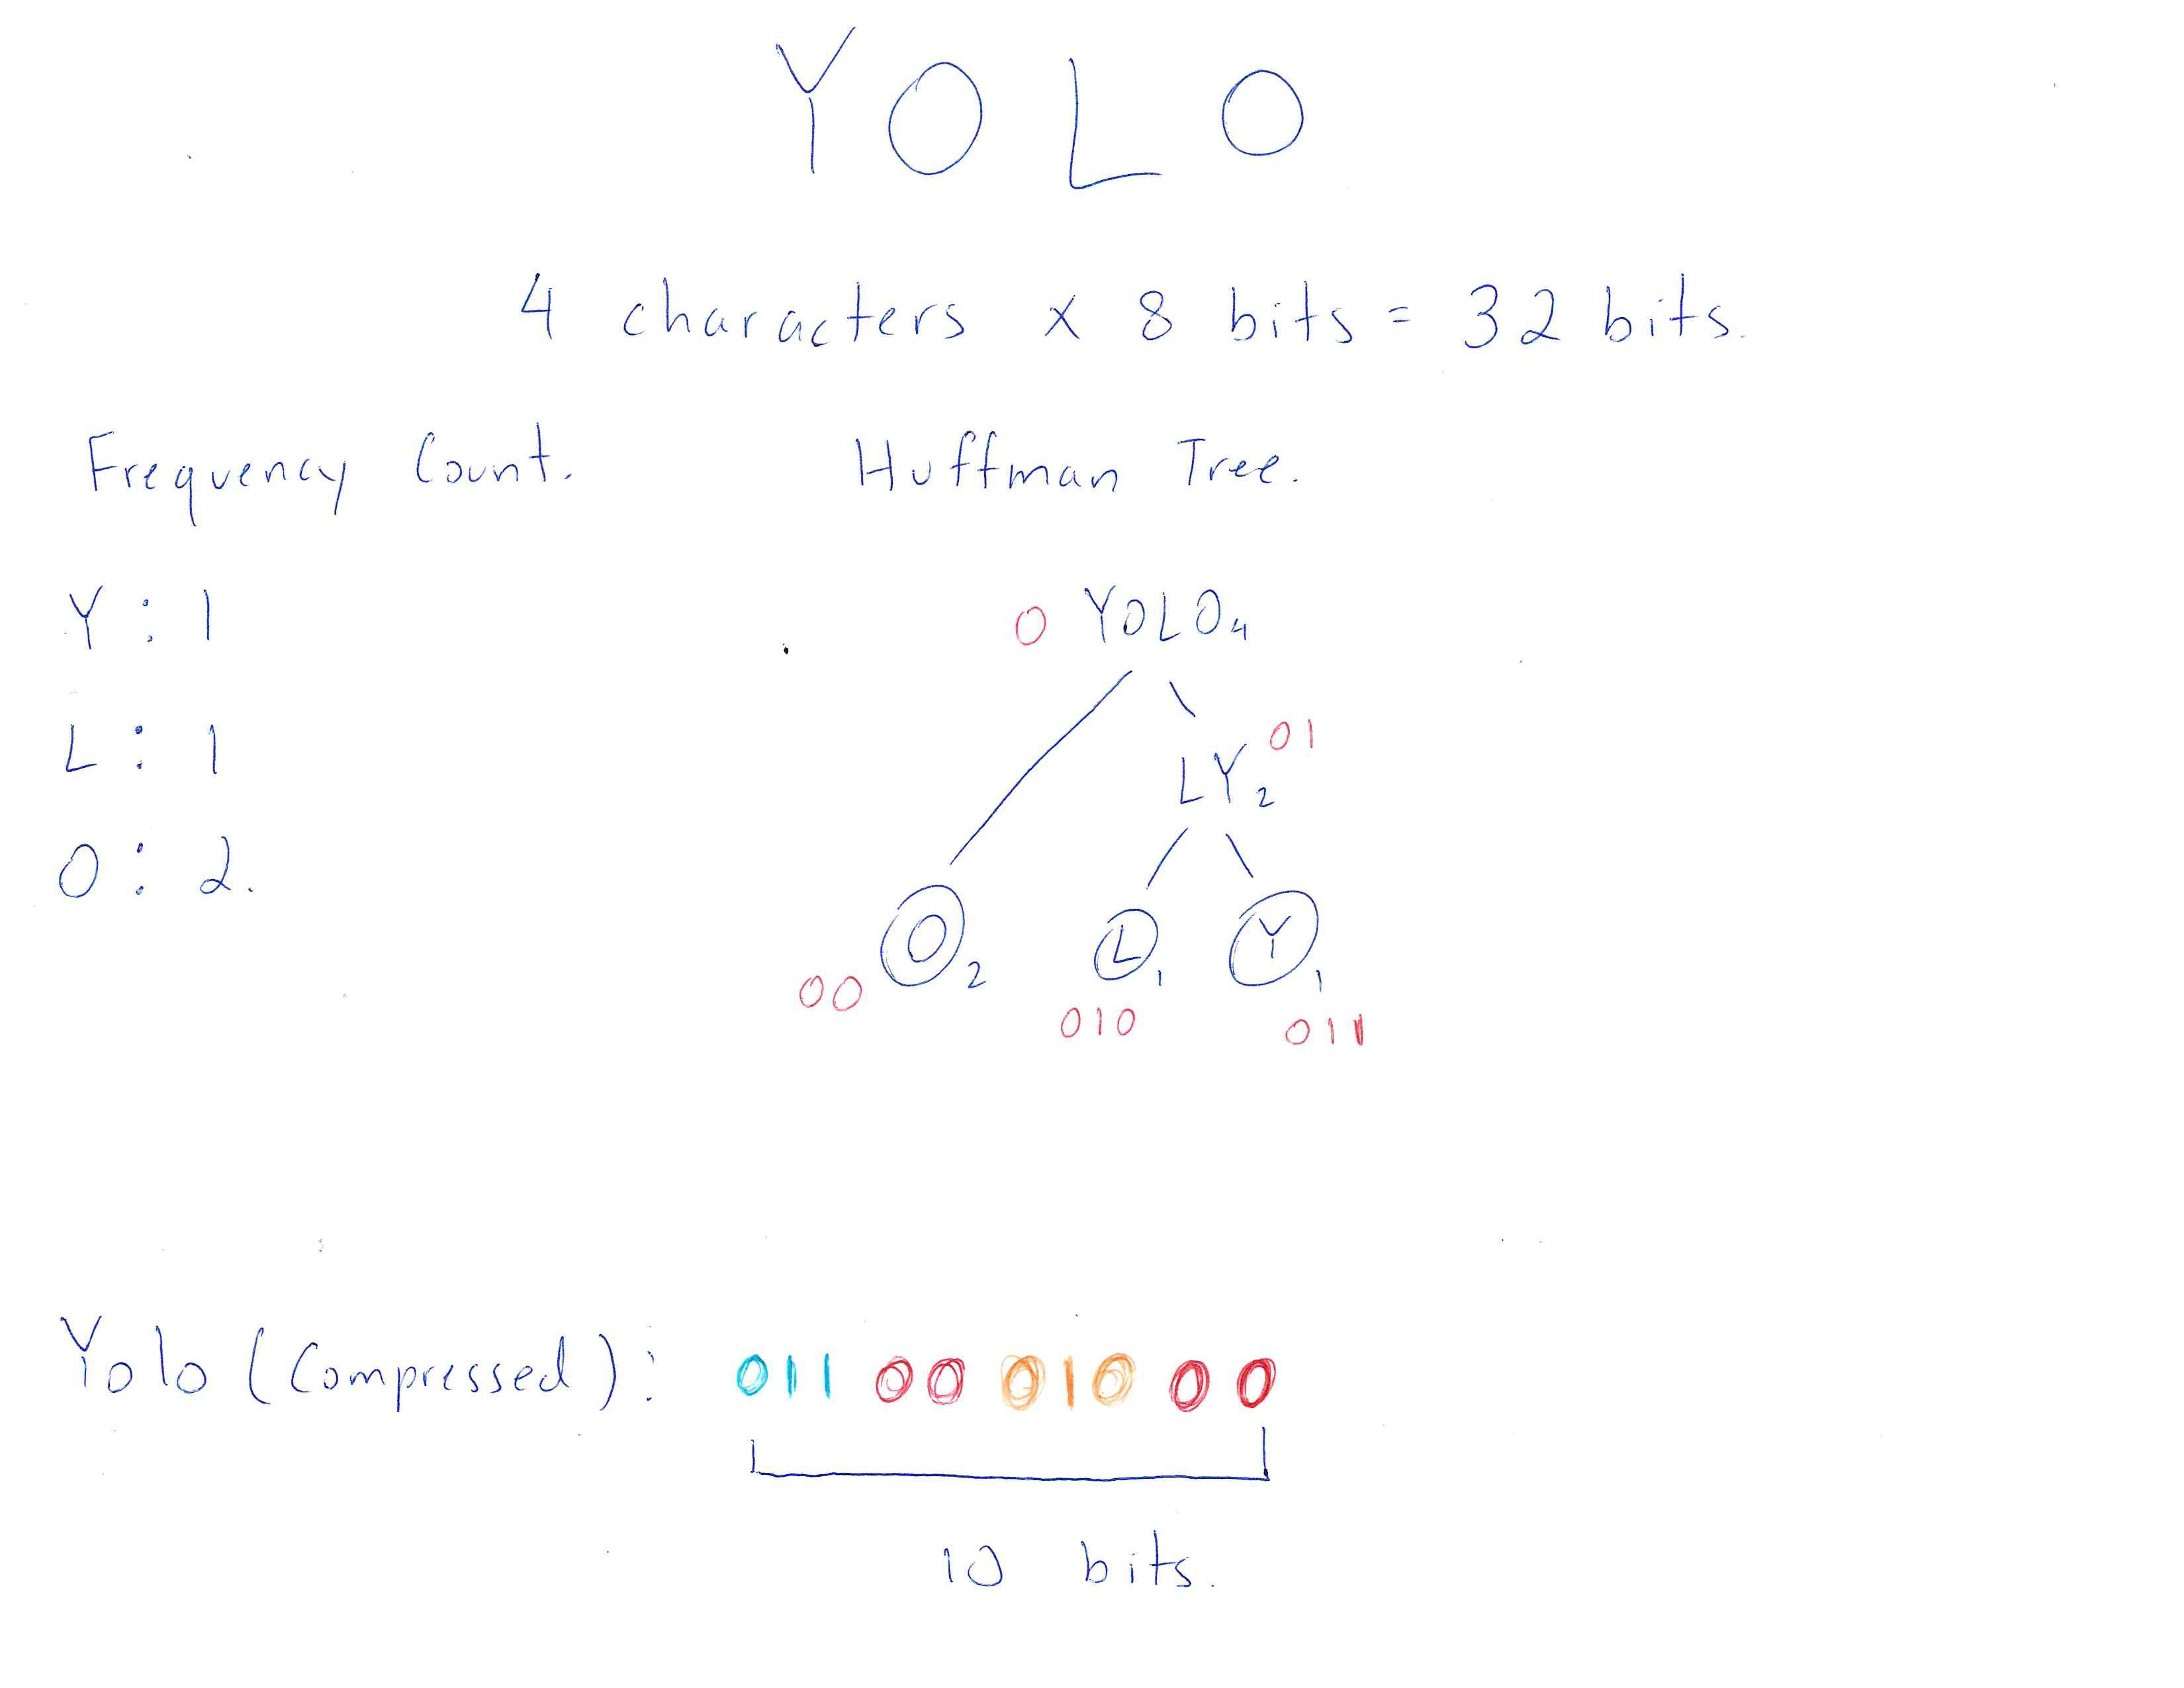 YOLO
4 characters x 8 bits = 32 bits.
Frequency Count.
Huffman Tree.
Y : 1
L : 1
O : 2.
0 YOLO4
01
LY2
O2
L1
Y1
00
010
011
Yolo (Compressed): 011 00 010 00
10 bits.